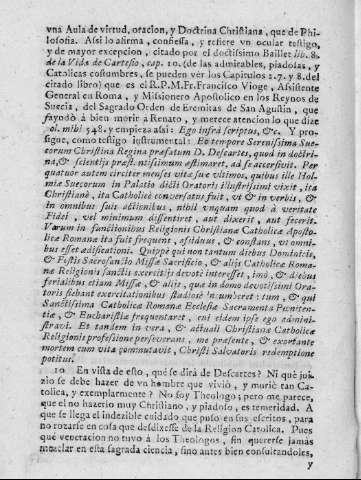 vna Aula de virtud, oracion, y Doctrina Christiana, que de Phi-
losofia. Assi lo afirma, confiessa, y refiere vn ocular testigo,
y de mayor excepcion, citado por el doctissimo Baillet lib. 8.
de la Vida de Cartesio, cap. 10. (de las admirables, piadosas, y
Catolicas costumbres, se pueden vèr los Capitulos 1.7. y 8. del
citado libro) que es el R.P.M.Fr. Francisco Vioge, Assistente
General en Roma, y Missionero Apostolico en los Reynos de
Suecia, del Sagrado Orden de Eremitas de San Agustin, que
ayudò à bien morir a Renato, y merece atencion lo que dize
mihi 548. y empieza assi: Ego infra scriptus, &c. Y pro-
sigue, como testigo instrumental: Et tempore Serenissima Sue-
corum Christina Regina præsatum D. Descartes, quod in doctri-
na, & scientijs præstantissimum æstimaret, ad se accersivit. Per
quatuor autem circiter menses vitæ suæ vltimos, quibus ille Hol-
miæ Suecorum in Palatio dicti Oratoris illustrissimi vixit, ita
Christianè, ita Catholicè conversatus fuit, vt & in verbis, &
in omnibus suis actionibus, nihil vnquam quod à veritate
Fidei, vel minimum dissentiret, aut dixerit, aut fecerit.
Varum in functionibus Religionis Christianæ Catholicæ Aposto-
licæ Romanæ ita fuit frequent, assiduus, & constans, vt omni-
bus esset ædificationi. Quippe qui non tantum diebus Dominicis,
& Festis Sacrosancto Missæ Sacrificio, & alijs Catholicæ Roma-
næ Religionis sanctis exercitijs devotè interesset, imò, & diebus
ferialibus etiam Missæ, & alijs, quæ in domo devotissimi Ora-
toris fiebant exercitationibus studiosè numeret: tum, & qui
Sanctissima Catholicæ Romanæ Ecclesiæ Sacramenta Pœniten-
tiæ, & Eucharistiæ frequentaret, eui eidem ipse ego admini-
stravi. Et tandem in vera, & actuali Christianæ Catholicæ
Religionis professione perseverant, me præsente, & exortante
mortem cum vita commutavit, Christi Salvatoris redemptione
potitus.
10 En vista de esto, què se dirà de Descartes? Ni què jui-
zio se debe hazer de vn hombre que viviò, y muriò tan Ca-
tolica, y exemplarmente? No soy Theologo; pero me parece,
que el no hazerlo muy Christiano, y piadoso, es temeridad. A
que se llega el indezible cuidado que puso en sus escritos, para
no rozarse en cosa que desdixesse de la Religion Catolica. Pues
què veneracion no tuvo à los Theologos, sin quererse jamàs
mezclar en esta sagrada ciencia, sino antes bien consultandoles,
y